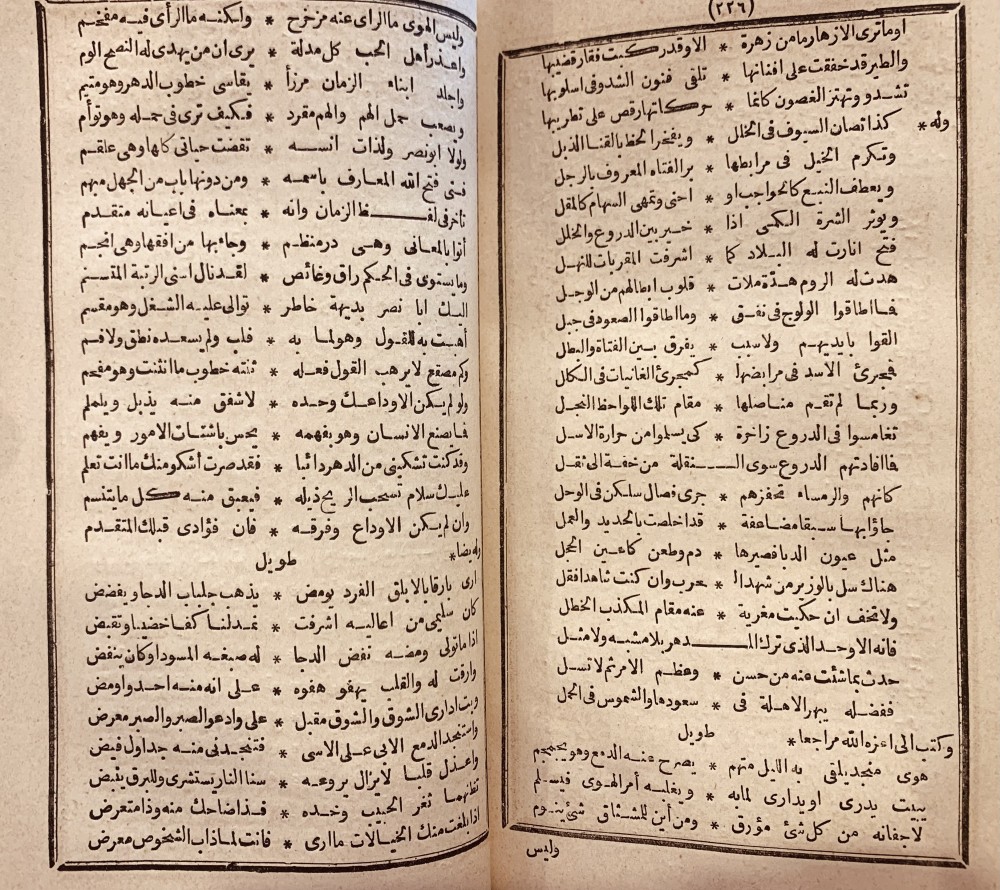 (٢٢٦)
اوما ترى الازهار ما من زهرة * الا وقد ركبت فقار قضيبها
والطير قد خفقت على افنانها * تلقى فنون الشدو فى اسلوبها
تشدو وتهتز الغصون كانما * حركاتها رقص على تطريبها
وله * كذا تصان السيوف فى الخلل * ويفخر الحظ بالقنا الذبل
وتكرم الخيل فى مرابطها * بر الفتاه المعروف بالرجل
ويعطف النبع كالحواجب او * احنى وتمهى السهام كالمقل
ويوثر الشرة الكمى اذا * خير بين الدروع والحلل
فتح انارت له البلاد كما * اشرقت المقربات للنهل
هدت له الروم هدّة ملات * قلوب ابطالهم من الوجل
فما اطاقوا الولوج فى نفق * وما اطاقوا الصعود فى جبل
القوا بايديهم ولا سبب * يفرق بين الفتاة والبطل
فجرئ الاسد فى مرابضها * كمجرئ الغانيات فى الكلل
وربما لم تقم مناصلها * مقام تلك اللواحظ النجل
تغامسوا فى الدروع زاخرة * كى يسلموا من حرارة الاسل
فما افادتهم الدروع سوى الـ * ـنقلة من خفة الى ثقل
كانهم والرمساء تحفزهم * جرى فصال سلكن فى الوحل
جاؤا بها سبقا مضاعفة * قد اخلصت بالحديد والعمل
مثل عيون الدبا قصيرها * دم وطعن كاعين الحجل
هناك سل بالوزير من شهد الـ * حرب وان كنت شاهدا فقل
ولا تخف ان حكيت مغربة * عنه مقام المكذب الخطل
فانه الاوحد الذى ترك الـ * ـدهر بلا مشبه ولا مثل
حدث بما شئت عنه من حسن * وعظم الامر ثم لا تسل
ففضله يبهر الاهلة فى * سعودها والشموس فى الحمل
وكتب الى اعزه الله مراجعا * طويل
هوى منجد يلقى به الليل متهم * يصرح عنه الدمع وهو يجمجم
يبيت يدرى او يدارى لما به * ويغلبه أمر الهوى فيسلم
لاجفانه من كل شئ مؤرق * ومن أين للمشتاق شئ ينوم
وليس
وليس الهوى ما الراى عنه مزحزح * ولكنه ما الرأى فيه مفخم
واعذر أهل الحب كل مدلة * يرى ان من يهدى له النصح الوم
واجلد ابناء الزمان مرزأ * يقاسى خطوب الدهر وهو متيم
ويصعب حمل الهم والهم مفرد * فكيف ترى فى حمله وهو توأم
ولولا ابو نصر ولذات انسه * تقضت حياتى كلها وهى علقم
فتى فتح الله المعارف باسمه * ومن دونها باب من الجهل مبهم
تأخر فى لفـظ الزمان وانه * بمعناه فى اعيانه متقدم
أتوا بالمعانى وهى در منظم * وجاء بها من افقها وهى انجم
وما يستوى فى الحكم راق وغائص * لقد نال اسنى الرتبة المتسنم
اليك ابا نصر بديهة خاطر * توالى عليه الشغل وهو مقسم
أهبت به للقول وهو لما به * فلب ولم يسعده نطق ولا فم
وكم مصقع لا يرهب القول فعله * ثنته خطوب ما انثنت وهو مفحم
ولو لم يكن الا وداعك وحده * لاشفق منه يذبل ويلملم
فما يصنع الانسان وهو بفهمه * يحس باشتات الامور ويفهم
وقد كنت تشكينى من الدهر دائبا * فقد صرت أشكو منك ما انت تعلم
عليك سلام تسحب الريح ذيله * فيعبق منه كل ما يتنسم
وان لم يكن الا وداع وفرقة * فان فؤادى قبلك المتقدم
وله ايضا * طويل
ارى بارقا بالابلق الفرد يومض * يذهب جلباب الدجا ويفضض
كان سليمى من اعاليه اشرقت * تمد لنا كفا خضيبا وتقبض
اذا ما تولى ومضه نفض الدجا * له صبغه المسود او كان ينفض
وارقت له والقلب يهفو هفوه * على انه منه احد واومض
وبت ادارى الشوق والشوق مقبل * على وادعو الصبر والصبر معرض
واستنجد الدمع الابى على الاسى * فتنجدنى منه جداول فيض
واعذل قلبا لا يزال يروعه * سنا النار يستشرى وللبرق ينبض
تظنهما ثغر الحبيب وخده * فذا ضاحك منه وذا متعرض
اذا بلغت منك الخيالات ما ارى * فانت لماذا بالشخوص معرض